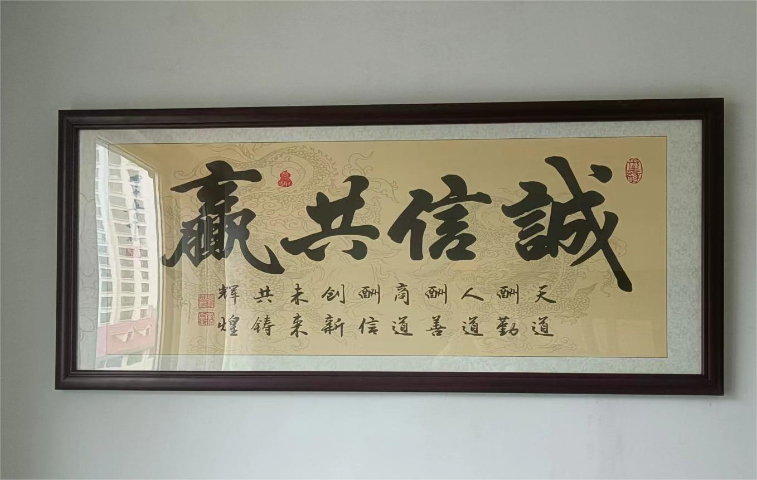 誠信共赢
天道
酬勤
人道
酬善
商道
酬信
创新
未来
共铸
辉煌